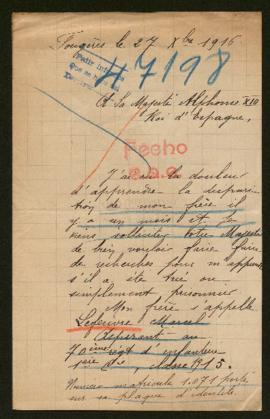 Fougères le 27 Xbre 1916
Pedir informe
47198
A Sa Majesté Alphonse XIII
Roi d'Espagne,
Fecho
J'ai eu la douleur
d'apprendre la dispari
tion de mon frère il
y a un mois et je
viens solliciter votre Majesté
de bien vouloir faire faire
de recherches pour m'apprendre
s'il a été tué ou
simplement prisonnier
Mon frère s'appelle
Lefeuvre Marcel
Aspirant au
70ème Régt d'infanterie
1ère Cie, classe 1915.
Numéro matricule 1.071 porté
sur sa plaque d'identité